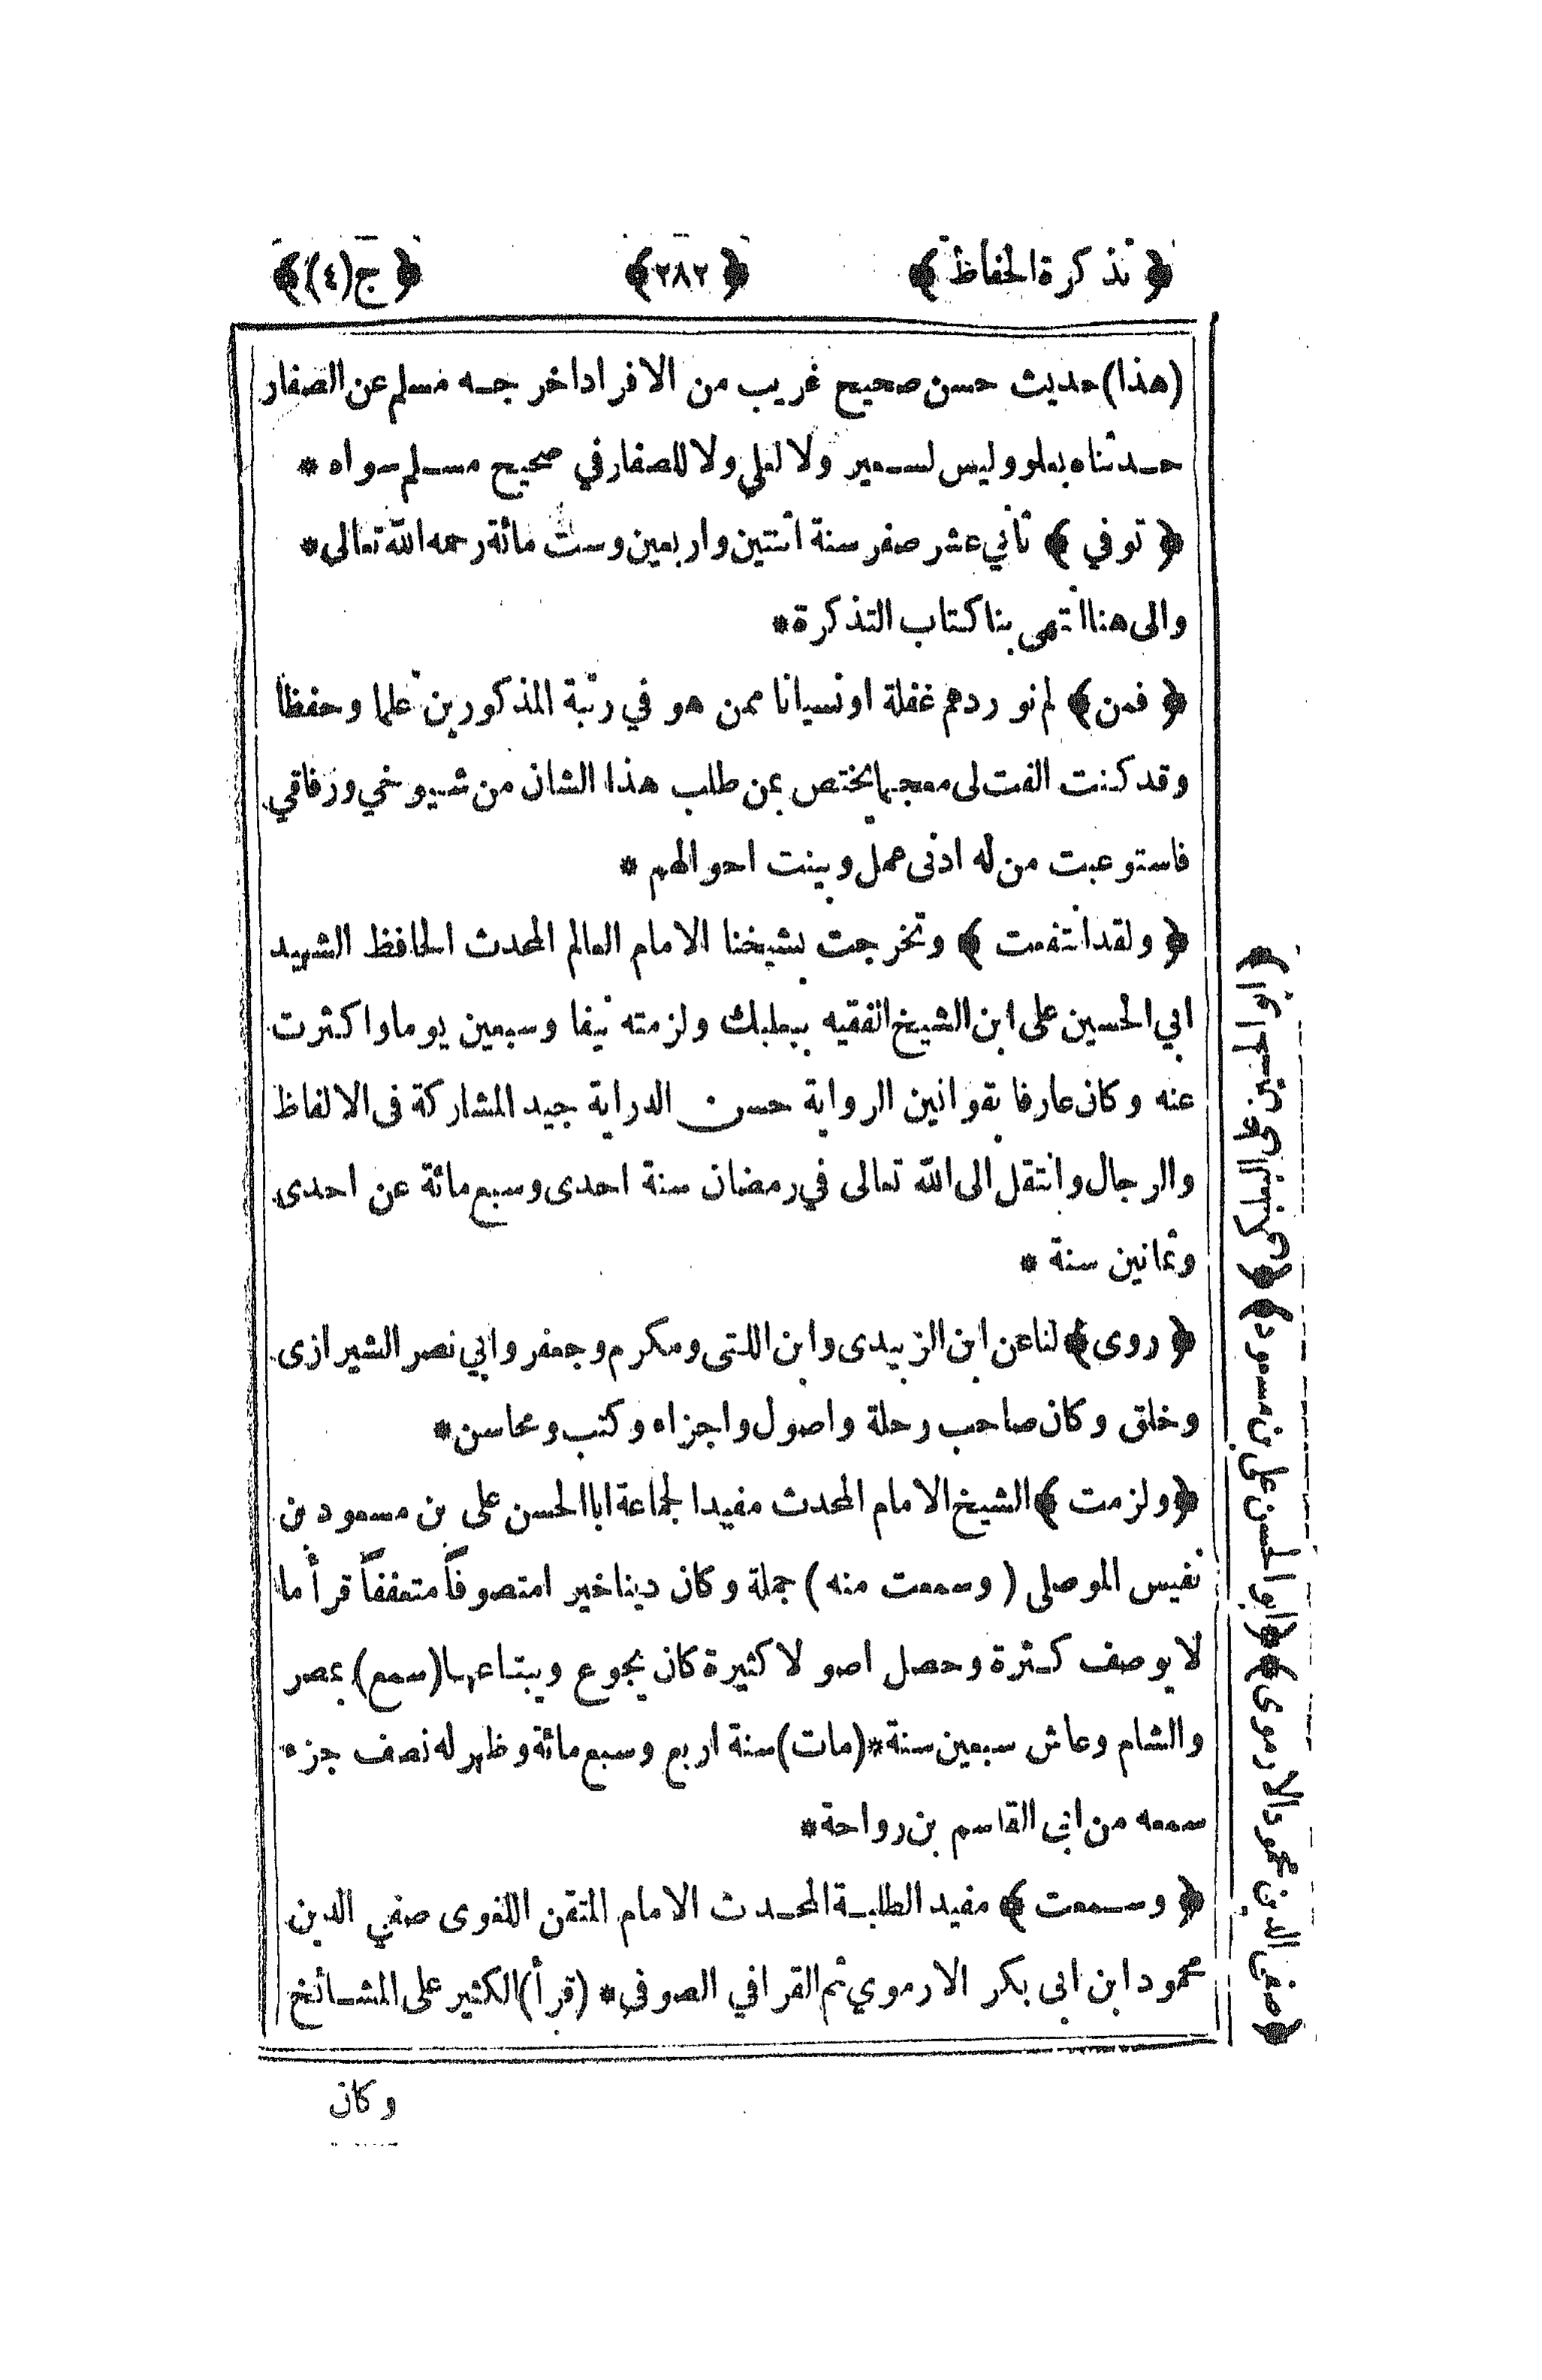 ﴿ تذكرة الحفاظ ﴾ ﴿ ٢٨٢ ﴾ ﴿ ج (٤) ﴾
(هذا) حديث حسن صحيح غريب من الافراد اخرجه مسلم عن الصفار
حدثناه بعلو وليس لسعير ولا لعلي ولا للصفار في صحيح مسلم سواه *
﴿ توفي ﴾ ثاني عشر صفر سنة اثنتين واربعين وست مائة رحمه الله تعالى *
والى هنا انتهى بنا كتاب التذكرة *
﴿ فمن ﴾ لم نوردهم غفلة او نسيانا ممن هو في رتبة المذكورين علما وحفظا
وقد كنت الفت لى معجما يختص بمن طلب هذا الشان من شيوخي ورفاقي
فاستوعبت من له ادنى عمل وبينت احوالهم *
﴿ ولقد انتفعت ﴾ وتخرجت بشيخنا الامام العالم المحدث الحافظ الشهيد
ابي الحسين على ابن الشيخ الفقيه ببعلبك ولزمته نيفا وسبعين يوما واكثرت
عنه وكان عارفا بقوانين الرواية حسن الدراية جيد المشاركة فى الالفاظ
والرجال وانتقل الى الله تعالى في رمضان سنة احدى وسبع مائة عن احدى
وثمانين سنة *
﴿ روى ﴾ لنا عن ابن الزبيدى وابن اللتى ومكرم وجعفر وابي نصر الشيرازى
وخلق وكان صاحب رحلة واصول واجزاء وكتب ومحاسن *
﴿ ولزمت ﴾ الشيخ الامام المحدث مفيد الجماعة ابا الحسن على بن مسعود بن
نفيس الموصلى ( وسمعت منه ) جملة وكان دينا خيرا متصوفاً متعففاً قرأ ما
لا يوصف كثرة وحصل اصولا كثيرة كان يجوع ويبتاعها (سمع) بمصر
والشام وعاش سبعين سنة * (مات) سنة اربع وسبع مائة وظهر له نصف جزء
سمعه من ابى القاسم بن رواحة *
﴿ وسمعت ﴾ مفيد الطلبة المحدث الامام المتقن اللغوى صفي الدين
محمود ابن ابى بكر الارموي ثم القرافي الصوفي * (قرأ) الكثير على المشائخ
وكان
﴿صفى الدين محمود الارموى﴾ ﴿ابو الحسن على بن مسعود﴾